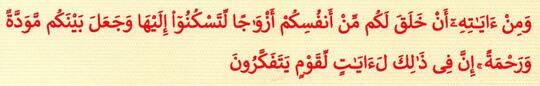 وَمِنْ ءَايَـٰتِهِۦٓ أَنْ خَلَقَ لَكُم مِّنْ أَنفُسِكُمْ أَزْوَٰجًا لِّتَسْكُنُوٓا۟ إِلَيْهَا وَجَعَلَ بَيْنَكُم مَّوَدَّةً
وَرَحْمَةً ۚ إِنَّ فِى ذَٰلِكَ لَـَٔايَـٰتٍ لِّقَوْمٍ يَتَفَكَّرُونَ